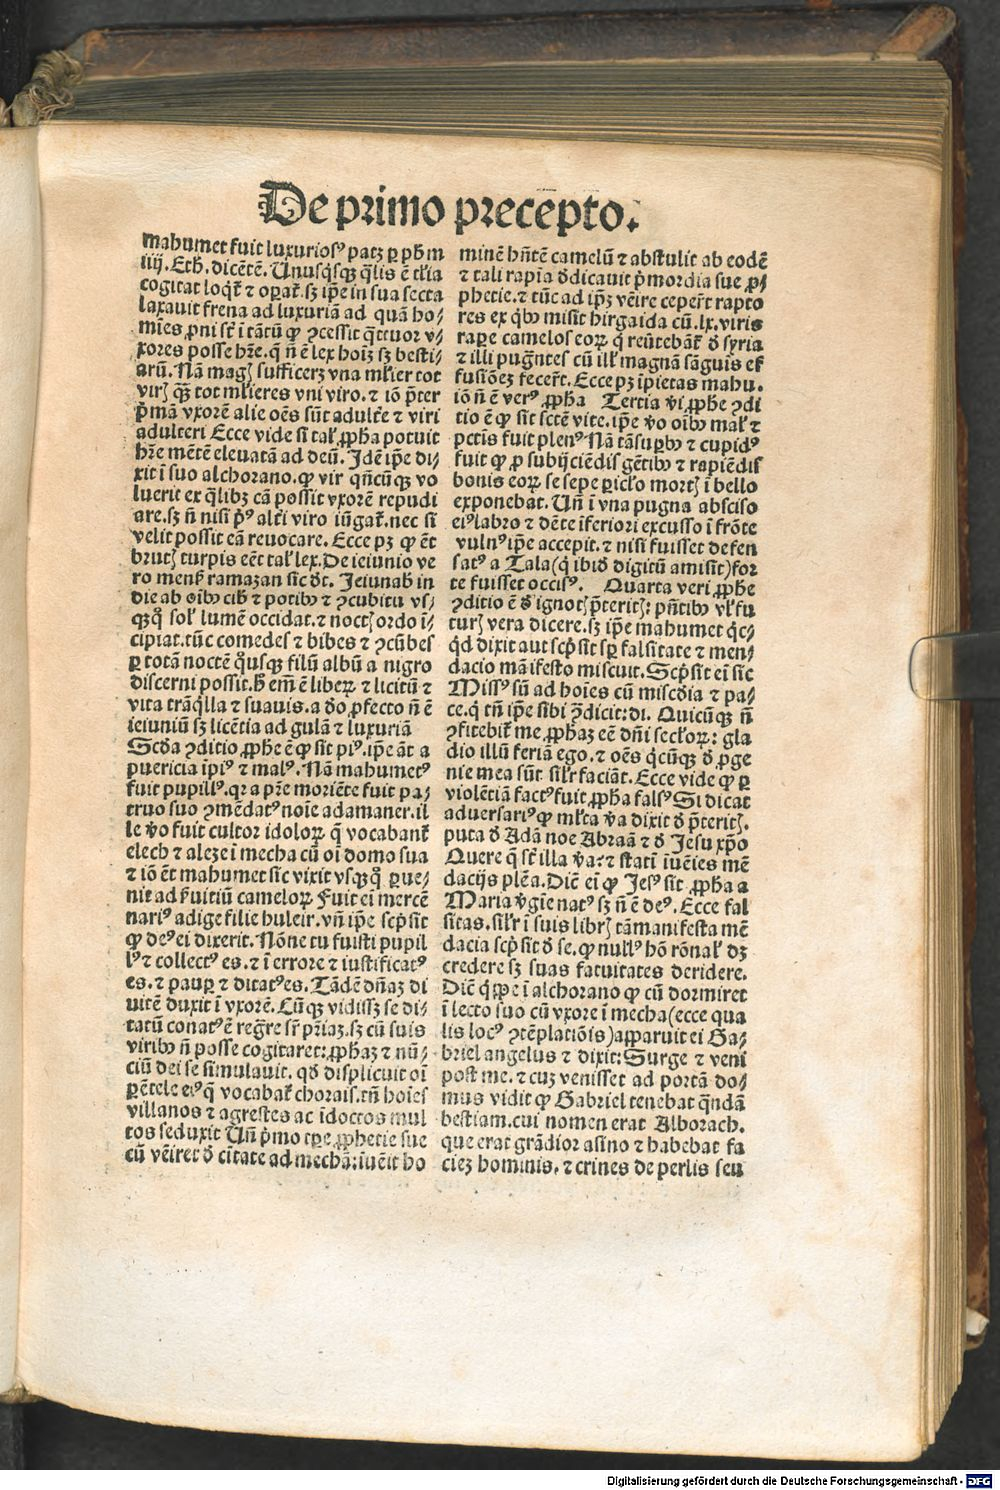 De primo precepto.
mahumet fuit luxurios⁹ patꝫ ꝑ ph̄m
iiij. Eth̄. dicētē. Unusq̄sqꝫ q̄lis ē tl̄ia
cogitat loqt̄ ⁊ oꝑat̄. sꝫ ip̄e in sua secta
laxavit frena ad luxuriā ad quā ho⸗
mīes ꝓni st̄ ī tātū ꝙ ꝯcessit q̄ttuor v⸗
xores posse hr̄e. q̄ ñ ē lex hoīꝫ sꝫ besti⸗
arū. Nā magꝭ sufficerꝫ vna ml̄ier tot
virꝭ qꝫ̄ tot ml̄ieres vni viro. ⁊ iō p̄ter
p̄mā vxorē alie oēs sūt adult̄e ⁊ viri
adulteri Ecce vide si tal̄ ꝓph̄a potuit
hr̄e mētē elevatā ad deū. Idē ip̄e di⸗
xit ī suo alchorano. ꝙ vir qñcūqꝫ vo
luerit ex q̄libꝫ cā possit vxorē repudi
are. sꝫ ñ nisi p⁹ alt̄i viro iūgat̄. nec si
velit possit eā revocare. Ecce pꝫ ꝙ ēt
brutꝭ turpis eēt tal̄ lex. De ieiunio ve
ro menẜ ramazan sic d̄t. Ieiunab̄ in
die ab oībꝰ cib̄ ⁊ potibꝰ ⁊ ꝯcubitu vs⸗
qꝫq̊ sol̄ lumē occidat. ⁊ noctꝭ ordo ī⸗
cipiat. tūc comedes ⁊ bibes ⁊ ꝯcūbes
ꝑ totā noctē q̊usqꝫ filū albū a nigro
discerni possit. h̄ em̄ ē liberꝝ ⁊ licitū ⁊
vita trāq̄lla ⁊ suavis. a d̊o ꝓfecto ñ ē
ieiuniū sꝫ licētia ad gulā ⁊ luxuriā
Scd̄a ꝯditio ꝓph̄e ē ꝙ sit pi⁹. ip̄e āt a
puericia īpi⁹ ⁊ mal⁹. Nā mahumet⁹
fuit pupill⁹. qꝛ a pr̄e moriēte fuit pa⸗
truo suo ꝯmēdat⁹ noīe adamaner. il
le v̊o fuit cultor idoloꝝ q̄ vocabant̄
elech ⁊ aleze ī mecha cū oī domo sua
⁊ iō ēt mahumet sic vixit vsqꝫq̊ ꝑue⸗
nit ad ẜuitiū cameloꝝ Fuit ei mercē
nari⁹ adige filie huleir. vñ ip̄e scp̄sit
ꝙ de⁹ ei dixerit. Nōne tu fuisti pupil
l⁹ ⁊ collect⁹ es. ⁊ ī errore ⁊ iustificat⁹
es. ⁊ pauꝑ ⁊ ditat⁹ es. Tādē dñaꝫ di
uitē duxit ī vxorē. Cūqꝫ vidissꝫ se di⸗
tatū conat⁹ ē reg̊re sr̄ p̄riaꝫ. sꝫ cū suis
viribꝰ ñ posse cogitaret: ꝓph̄aꝫ ⁊ nū⸗
ciū dei se simulavit. qd̊ displicuit oī
ꝑētele ei⁹ q̄ vocabat̄ chorais. tñ hoīes
villanos ⁊ agrestes ac īdoctos mul
tos seduxit Uñ p̄mo tꝑe ꝓph̄etie sue
cū vēiret d̊ cītate ad mechā: īuēit ho
minē hñtē camelū ⁊ abstulit ab eodē
⁊ tali rapīa ędicavit p̄mordia sue ꝓ⸗
phetie. ⁊ tūc ad ip̄ꝫ vēire ceper̄t rapto
res ex qꝰ̄ misit hirgaida cū. lx. viris
raꝑe camelos eoꝝ q̇ reūtebāt̄ d̊ syria
⁊ illi pug̊ntes cū ill̄ magnā sāguīs ef
fusiōeꝫ fecer̄t. Ecce pꝫ īpietas mahu.
iō ñ ē ver⁹ ꝓph̄a Tertia v̊i ꝓph̄e ꝯdi
tio ē ꝙ sit sctē vite. ip̄e v̊o oībꝰ mal̄ ⁊
pctīs fuit plen⁹ Nā tā supbꝰ ⁊ cupid⁹
fuit ꝙ ꝓ subijciēdis gētibꝰ ⁊ rapiēdis
bonis eoꝝ se sepe ꝑicl̄o mortꝭ ī bello
exponebat. Uñ ī vna pugna absciso
ei⁹ labro ⁊ dēte īferiori excusso ī frōte
vuln⁹ ip̄e accepit. ⁊ nisi fuisset defen
sat⁹ a Tala (q̇ ibid̊ digitū amisit) for
te fuisset occis⁹. Quarta veri ꝓph̄e
ꝯditio ē d̊ ignotꝭ p̄teritꝭ: pñtibꝰ vl̄ fu
turꝭ vera dicere. sꝫ ip̄e mahumet q̇c⸗
q̇d dixit aut scp̄sit sꝑ falsitate ⁊ men⸗
dacio māifesto miscuit. Scp̄sit ei sic
Miss⁹ sū ad hoīes cū miscd̊ia ⁊ pa⸗
ce. q̄ tñ ip̄e sibi ꝯ̄dicit: di. Quicūqꝫ ñ
ꝯfitebit̄ me ꝓph̄aꝫ eē dñi secl̄oꝝ: gla
dio illū feriā ego. ⁊ oēs q̇cūqꝫ d̊ ꝓge
nie mea sūt sil̄r faciāt. Ecce vide ꝙ ꝑ
violētiā fact⁹ fuit ꝓph̄a fals⁹ Si dicat
adversari⁹ ꝙ ml̄ta v̊a dixit d̊ p̄teritꝭ.
puta d̊ Adā noe Abraā ⁊ d̊ Jesu xp̄o
Quere q̄ st̄ illa v̊a: ⁊ statī īuēies mē
dacijs plēa. Dic̄ ei ꝙ Jes⁹ sit ꝓph̄a a
Maria v̊gīe nat⁹ sꝫ ñ ē de⁹. Ecce fal
sitas. sil̄r ī suis librꝭ tā manifesta mē
dacia scp̄sit d̊ se. ꝙ null⁹ hō rōnal̄ dꝫ
credere sꝫ suas fatuitates deridere.
Dic̄ q̇ppe ī alchorano ꝙ cū dormiret
ī lecto suo cū vxore ī mecha (ecce qua
lis loc⁹ ꝯtēplatiōis) apparuit ei Ga⸗
briel angelus ⁊ dixit: Surge ⁊ veni
post me. ⁊ cuꝫ venisset ad portā do⸗
mus vidit ꝙ Gabriel tenebat q̄ndā
bestiam. cui nomen erat Alborach.
que erat grādior asino ⁊ habebat fa
cieꝫ hominis. ⁊ crines de perlis seu
Digitalisierung gefördert durch die Deutsche Forschungsgemeinschaft - DFG